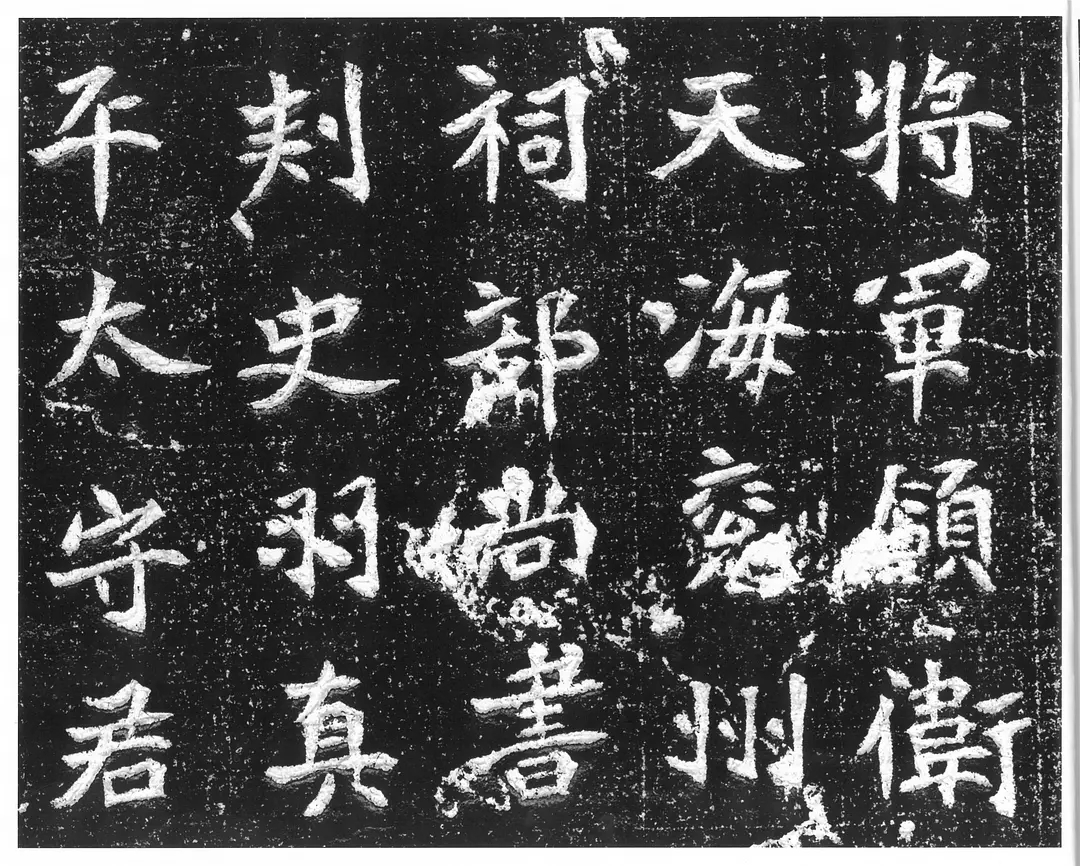 將軍領衛
天海兗州
祠部尚書
刺史羽真
平太守君